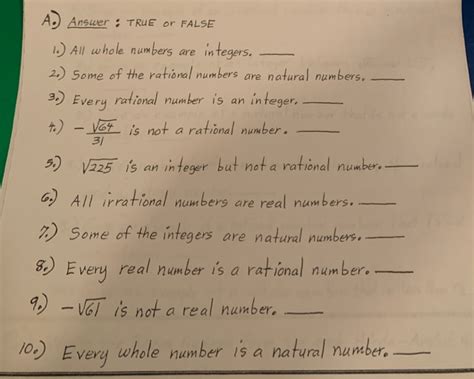 A.) Answer : TRUE or FALSE
1.) All whole numbers are integers. ____
2.) Some of the rational numbers are natural numbers. ____
3.) Every rational number is an integer. ____
4.) - √64/31 is not a rational number. ____
5.) √225 is an integer but not a rational number. ____
6.) All irrational numbers are real numbers. ____
7.) Some of the integers are natural numbers. ____
8.) Every real number is a rational number. ____
9.) -√61 is not a real number. ____
10.) Every whole number is a natural number. ____